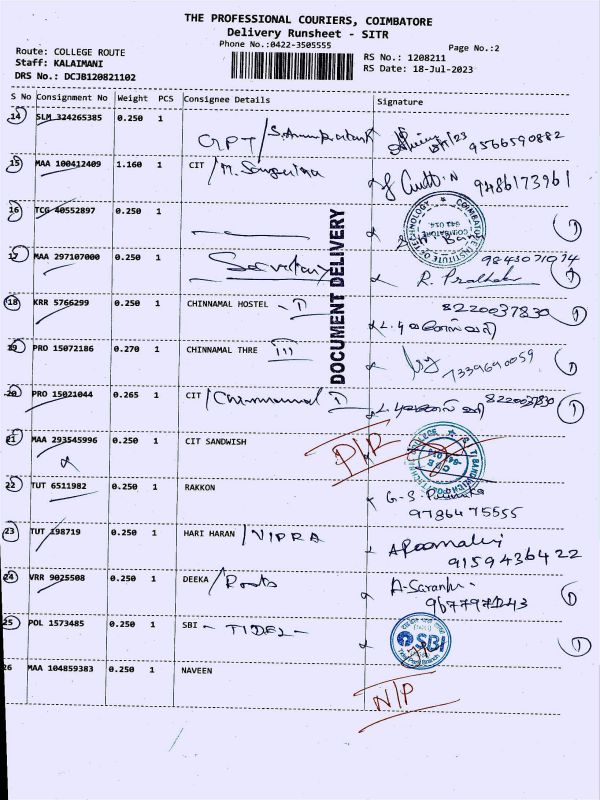 THE PROFESSIONAL COURIERS, COIMBATORE
Delivery Runsheet - SITR
Phone No.:0422-3505555
Page No.:2
Route: COLLEGE ROUTE
RS No.: 1208211
Staff: KALAIMANI
RS Date: 18-Jul-2023
DRS No.: DCJB120821102
S No Consignment No Weight PCS Consignee Details Signature
14 SLM 324265385 0.250 1
GPT/ 9566590882
15 MAA 100412409 1.160 1 CIT / M.
9486173961
16 TCG 40552897 0.250 1
COIMBATORE INSTITUTE OF TECHNOLOGY
COIMBATORE
641 014.
17 MAA 297107000 0.250 1 Secretary
9843071074
DOCUMENT DELIVERY
18 KRR 5766299 0.250 1 CHINNAMAL HOSTEL - I
8220037830
19 PRO 15072186 0.270 1 CHINNAMAL THRE III
7339690059
20 PRO 15021044 0.265 1 CIT /Chinnamal I 8220037830
21 MAA 293545996 0.250 1 CIT SANDWISH
22 TUT 6511982 0.250 1 RAKKON
G-S
9786475555
23 TUT 198719 0.250 1 HARI HARAN / VIPRA
9159436422
24 VRR 9025508 0.250 1 DEEKA / Roots
25 POL 1573485 0.250 1 SBI - TIDEL -
SBI
26 MAA 104859383 0.250 1 NAVEEN
N/P